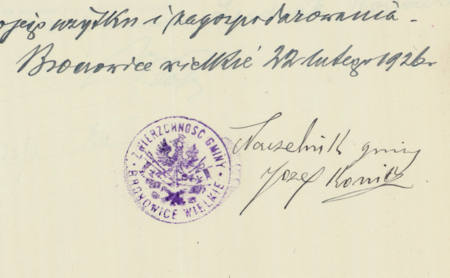 użytku i zagospodarowania.
Bronowice wielkié 22 lutego 1926r.
ZWIERZCHNOŚĆ GMINY
BRONOWICE WIELKIE
Naczelnik gminy
Józef